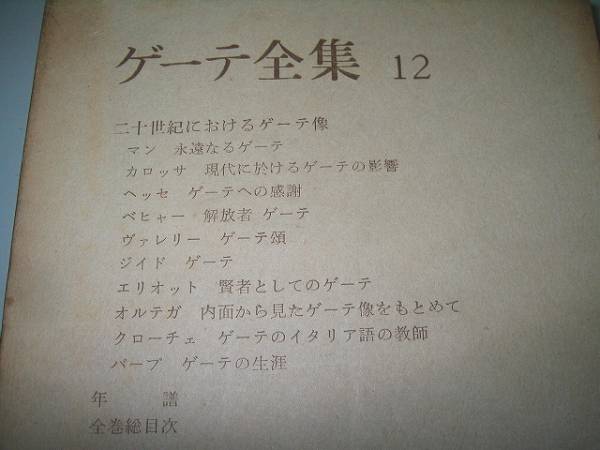 ゲーテ全集 12
二十世紀におけるゲーテ像
マン 永遠なるゲーテ
カロッサ 現代に於けるゲーテの影響
ヘッセ ゲーテへの感謝
ベヒャー 解放者 ゲーテ
ヴァレリー ゲーテ頌
ジイド ゲーテ
エリオット 賢者としてのゲーテ
オルテガ 内面から見たゲーテ像をもとめて
クローチェ ゲーテのイタリア語の教師
バープ ゲーテの生涯
年 譜
全巻総目次